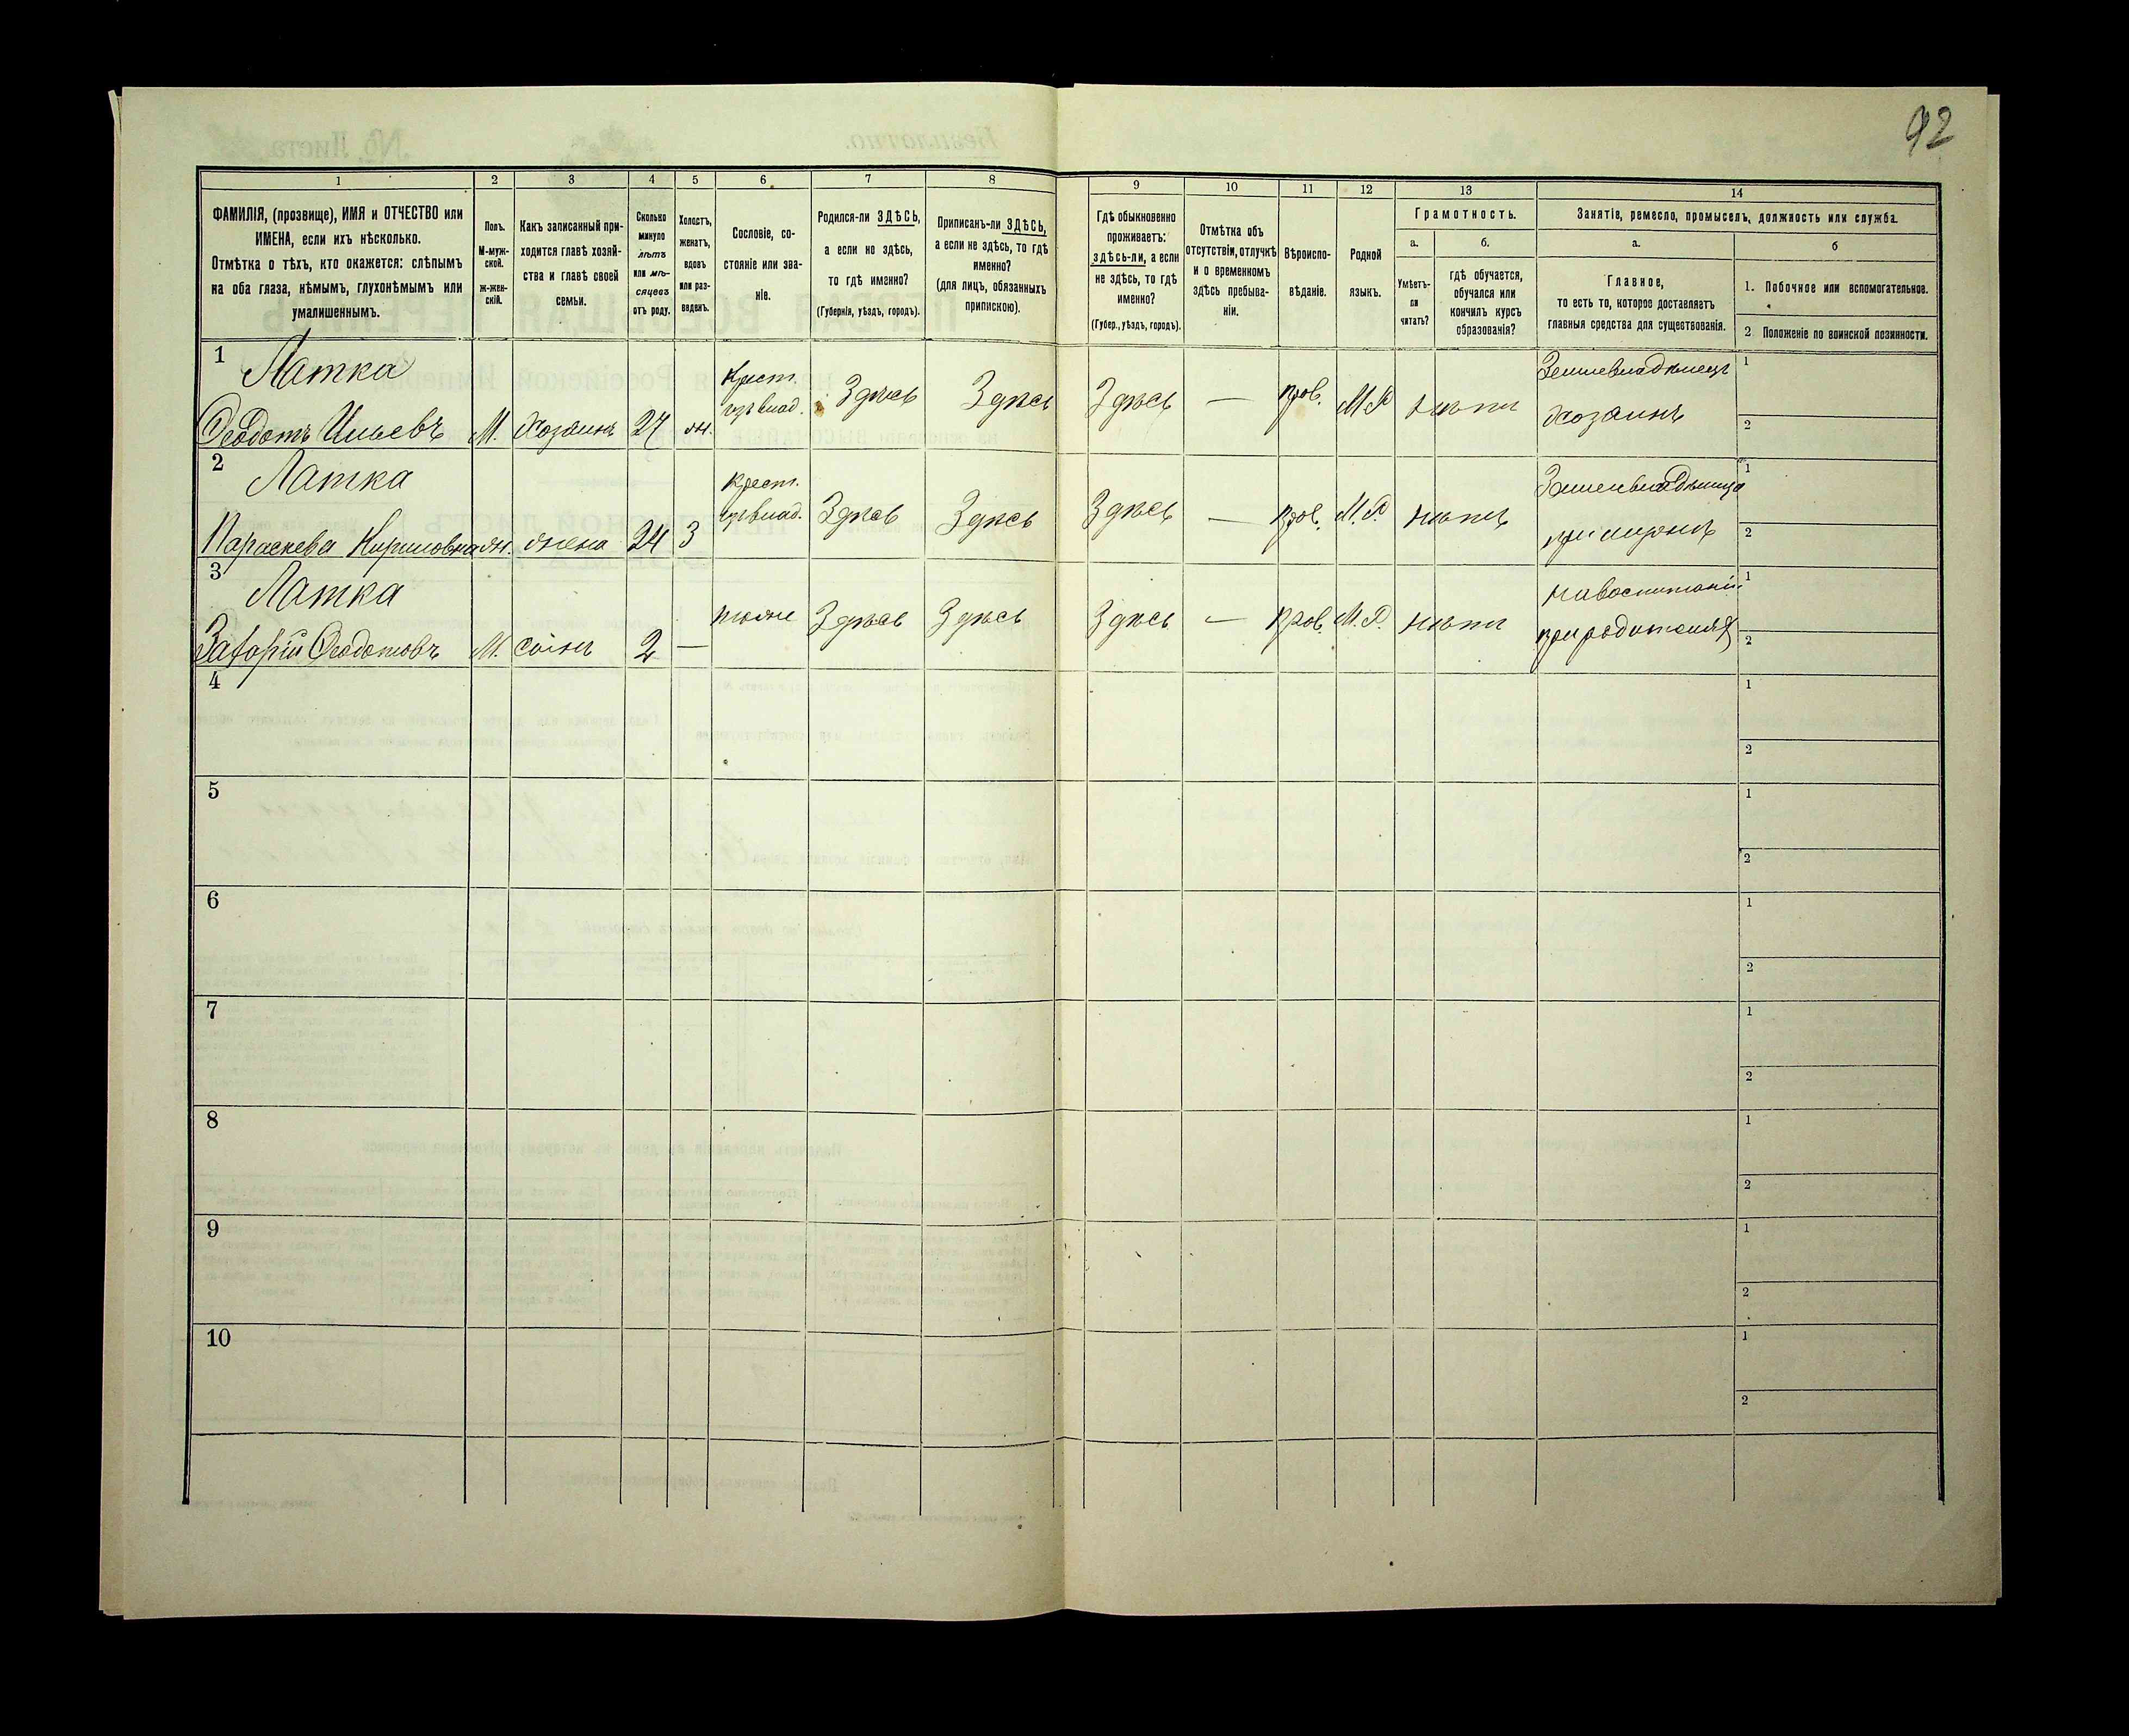 92
1 2 3 4 5 6 7 8 9 10 11 12 13 14
ФАМИЛІЯ, (прозвище), ИМЯ и ОТЧЕСТВО или
ИМЕНА, если ихъ нѣсколько.
Отмѣтка о тѣхъ, кто окажется: слѣпымъ
на оба глаза, нѣмымъ, глухонѣмымъ или
умалишеннымъ.
Полъ.
М-муж-
ской.
ж-жен-
скій.
Какъ записанный при-
ходится главѣ хозяй-
ства и главѣ своей
семьи.
Сколько
минуло
лѣтъ
или мѣ-
сяцевъ
отъ роду.
Холостъ,
женатъ,
вдовъ
или раз-
веденъ.
Сословіе, со-
стояніе или зва-
ніе.
Родился-ли ЗДѢСЬ,
а если не здѣсь,
то гдѣ именно?
(Губернія, уѣздъ, городъ).
Приписанъ-ли ЗДѢСЬ,
а если не здѣсь, то гдѣ
именно?
(для лицъ, обязанныхъ
припискою).
Гдѣ обыкновенно
проживаетъ:
здѣсь-ли, а если
не здѣсь, то гдѣ
именно?
(Губер., уѣздъ, городъ).
Отмѣтка объ
отсутствіи, отлучкѣ
и о временномъ
здѣсь пребыва-
ніи.
Вѣроиспо-
вѣданіе.
Родной
языкъ.
Грамотность.
а.
Умѣетъ-
ли
читать?
б.
гдѣ обучается,
обучался или
кончилъ курсъ
образованія?
Занятіе, ремесло, промыселъ, должность или служба.
а.
Главное,
то есть то, которое доставляетъ
главныя средства для существованія.
б
1. Побочное или вспомогательное.
2 Положеніе по воинской повинности.
1 Латка
Ѳеодотъ Ильевъ М. Хозяинъ 27 ж. Крест. изъ влад. Здѣсь Здѣсь Здѣсь — прав. М.Р. нѣтъ Землевладѣлецъ хозяинъ 1 2
2 Латка
Параскева Кириловна ж. жена 24 З Крест. изъ влад. Здѣсь Здѣсь Здѣсь — прав. М.Р. нѣтъ Землевладѣлица при мужѣ 1 2
3 Латка
Ѳеодотовъ М. сынъ 2 — тоже Здѣсь Здѣсь Здѣсь — прав. М.Р. нѣтъ на воспитаніи при родителяхъ 1 2
4 1 2
5 1 2
6 1 2
7 1 2
8 1 2
9 1 2
10 1 2